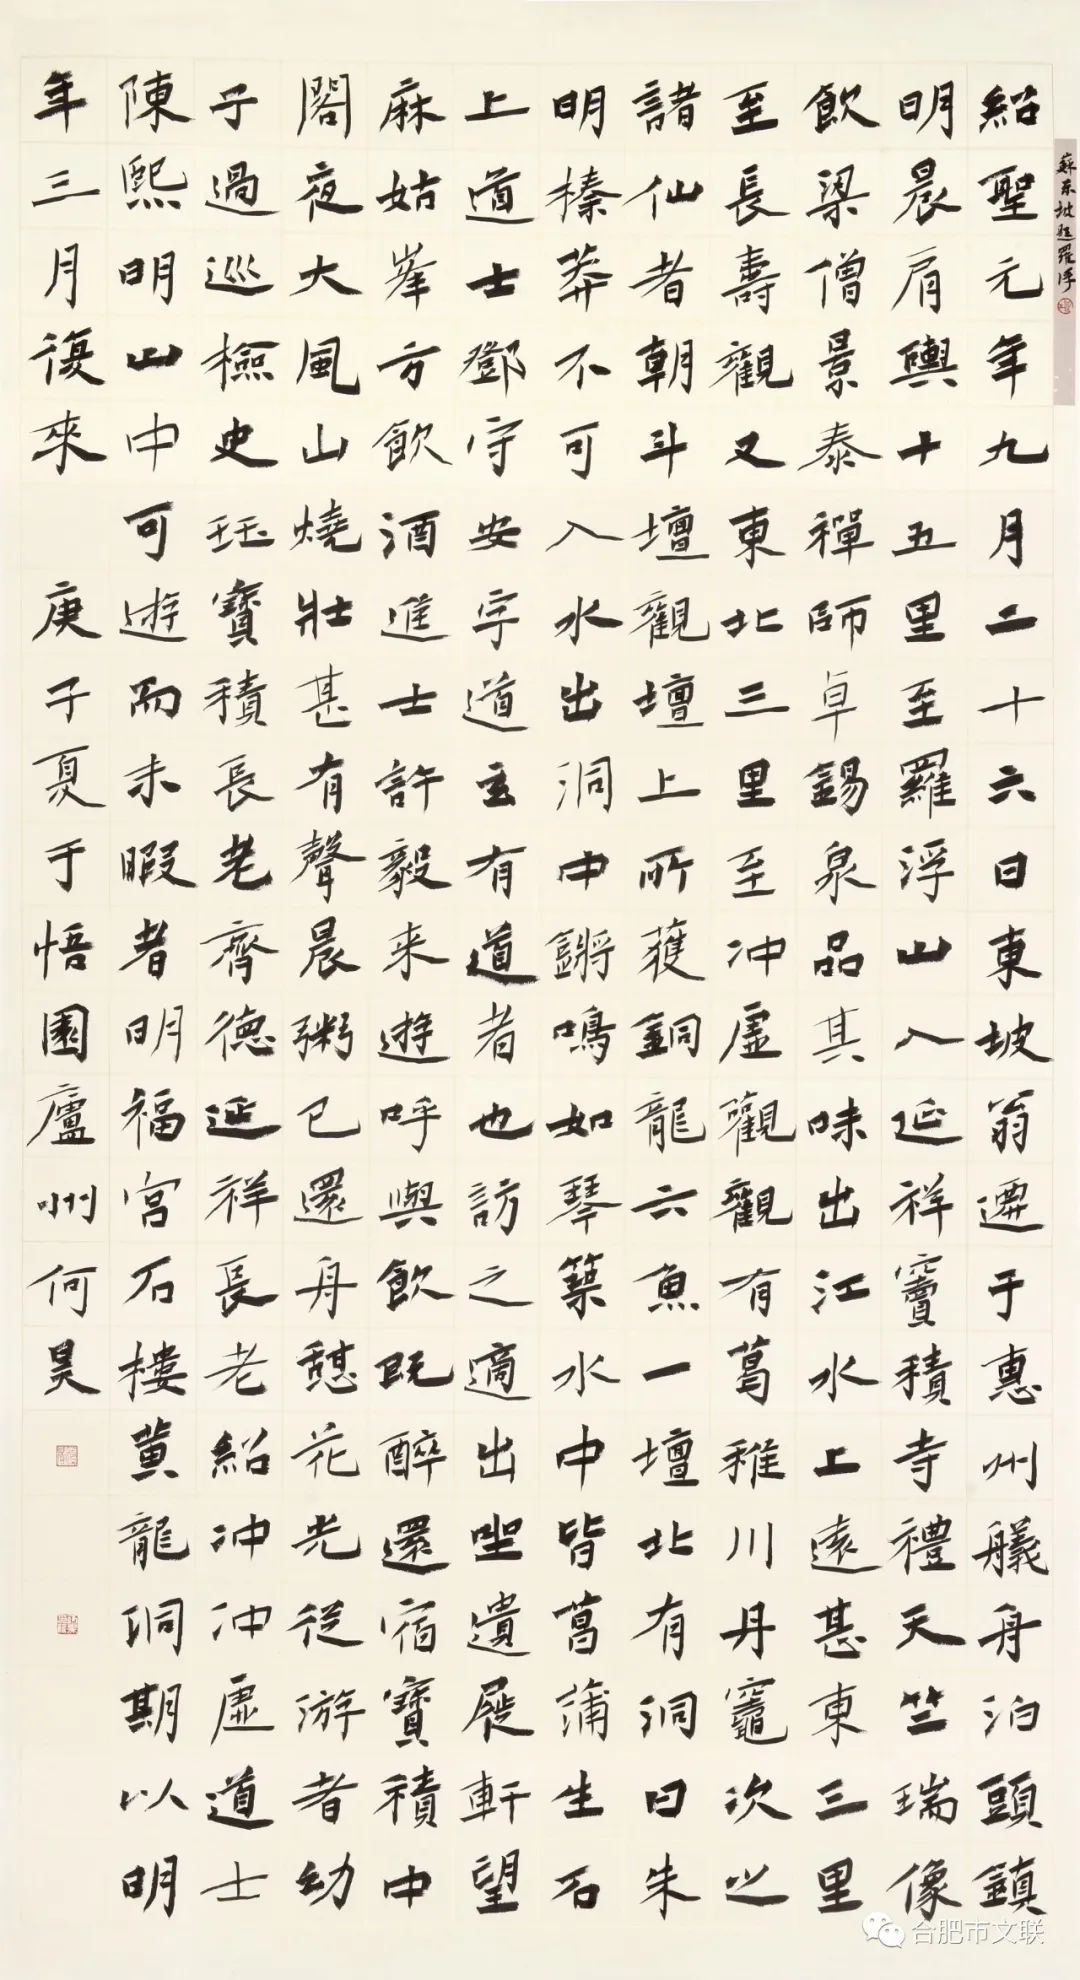 蘇东坡題羅浮
紹聖元年九月二十六日東坡翁遷于惠州艤舟泊頭鎮
明晨肩輿十五里至羅浮山入延祥寶積寺禮天竺瑞像
飲梁僧景泰禪師卓錫泉品其味出江水上遠甚東三里
至長壽觀又東北三里至冲虛觀觀有葛稚川丹竈次之
諸仙者朝斗壇觀壇上所獲銅龍六魚一壇北有洞曰朱
明榛莽不可入水出洞中鏘鳴如琴築水中皆菖蒲生石
上道士鄧守安字道玄有道者也訪之適出坐遺屣軒望
麻姑峯方飲酒進士許毅来遊呼與飲既醉還宿寶積中
閣夜大風山燒壯甚有聲晨粥已還舟憇花光從游者幼
子過巡檢史珏寶積長老齊德延祥長老紹冲冲虛道士
陳熙明山中可遊而未暇者明福宮石樓黄龍洞期以明
年三月復來 庚子夏于悟園廬州何昊
合肥市文联